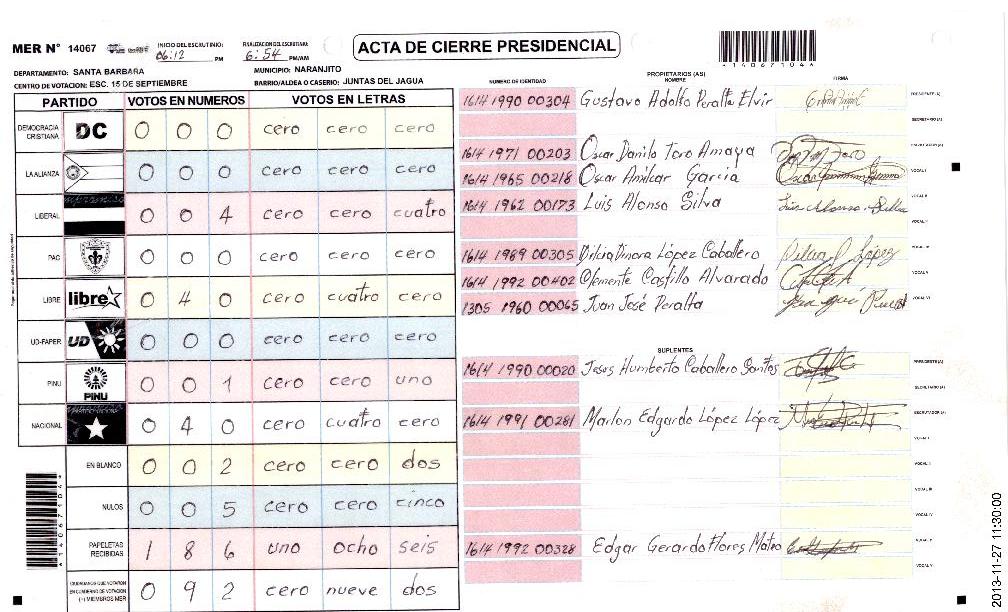 MER N° 14067
INICIO DEL ESCRUTINIO: 06:12 PM
FINALIZACION DEL ESCRUTINIO: 6:54 PM/AM
ACTA DE CIERRE PRESIDENCIAL
*140671044*
DEPARTAMENTO: SANTA BARBARA
MUNICIPIO: NARANJITO
CENTRO DE VOTACION: ESC. 15 DE SEPTIEMBRE
BARRIO/ALDEA O CASERIO: JUNTAS DEL JAGUA
PARTIDO VOTOS EN NUMEROS VOTOS EN LETRAS
DEMOCRACIA CRISTIANA DC 0 0 0 cero cero cero
LA ALIANZA 0 0 0 cero cero cero
LIBERAL 0 0 4 cero cero cuatro
PAC 0 0 0 cero cero cero
LIBRE libre 0 4 0 cero cuatro cero
UD-FAPER UD 0 0 0 cero cero cero
PINU PINU 0 0 1 cero cero uno
NACIONAL 0 4 0 cero cuatro cero
EN BLANCO 0 0 2 cero cero dos
NULOS 0 0 5 cero cero cinco
PAPELETAS RECIBIDAS 1 8 6 uno ocho seis
CIUDADANOS QUE VOTARON EN CUADERNO DE VOTACION (+) MIEMBROS MER 0 9 2 cero nueve dos
NUMERO DE IDENTIDAD
PROPIETARIOS (AS)
NOMBRE
FIRMA
1614 1990 00304 Gustavo Adolfo Peralta Elvir PRESIDENTE (A)
SECRETARIO (A)
1614 1971 00203 Oscar Danilo Toro Amaya ESCRUTADOR (A)
1614 1965 00218 Oscar Amilcar Garcia VOCAL I
1614 1962 00173 Luis Alonso Silva VOCAL II
1614 1989 00305 Dilcia Dinora López Caballero VOCAL IV
1614 1992 00402 Clemente Castillo Alvarado VOCAL V
1305 1960 00065 Juan José Peralta VOCAL VI
SUPLENTES
1614 1990 00020 Jesus Humberto Caballero Santos PRESIDENTE (A)
SECRETARIO (A)
1614 1991 00281 Marlon Edgardo López López ESCRUTADOR (A)
VOCAL I
VOCAL II
VOCAL III
VOCAL IV
1614 1992 00328 Edgar Gerardo Flores Mateo VOCAL V
2013-11-27 11:30:00